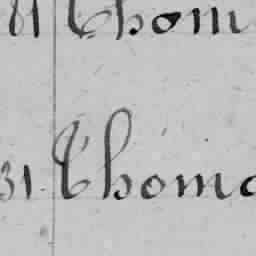 81 Thom
31 Thoma